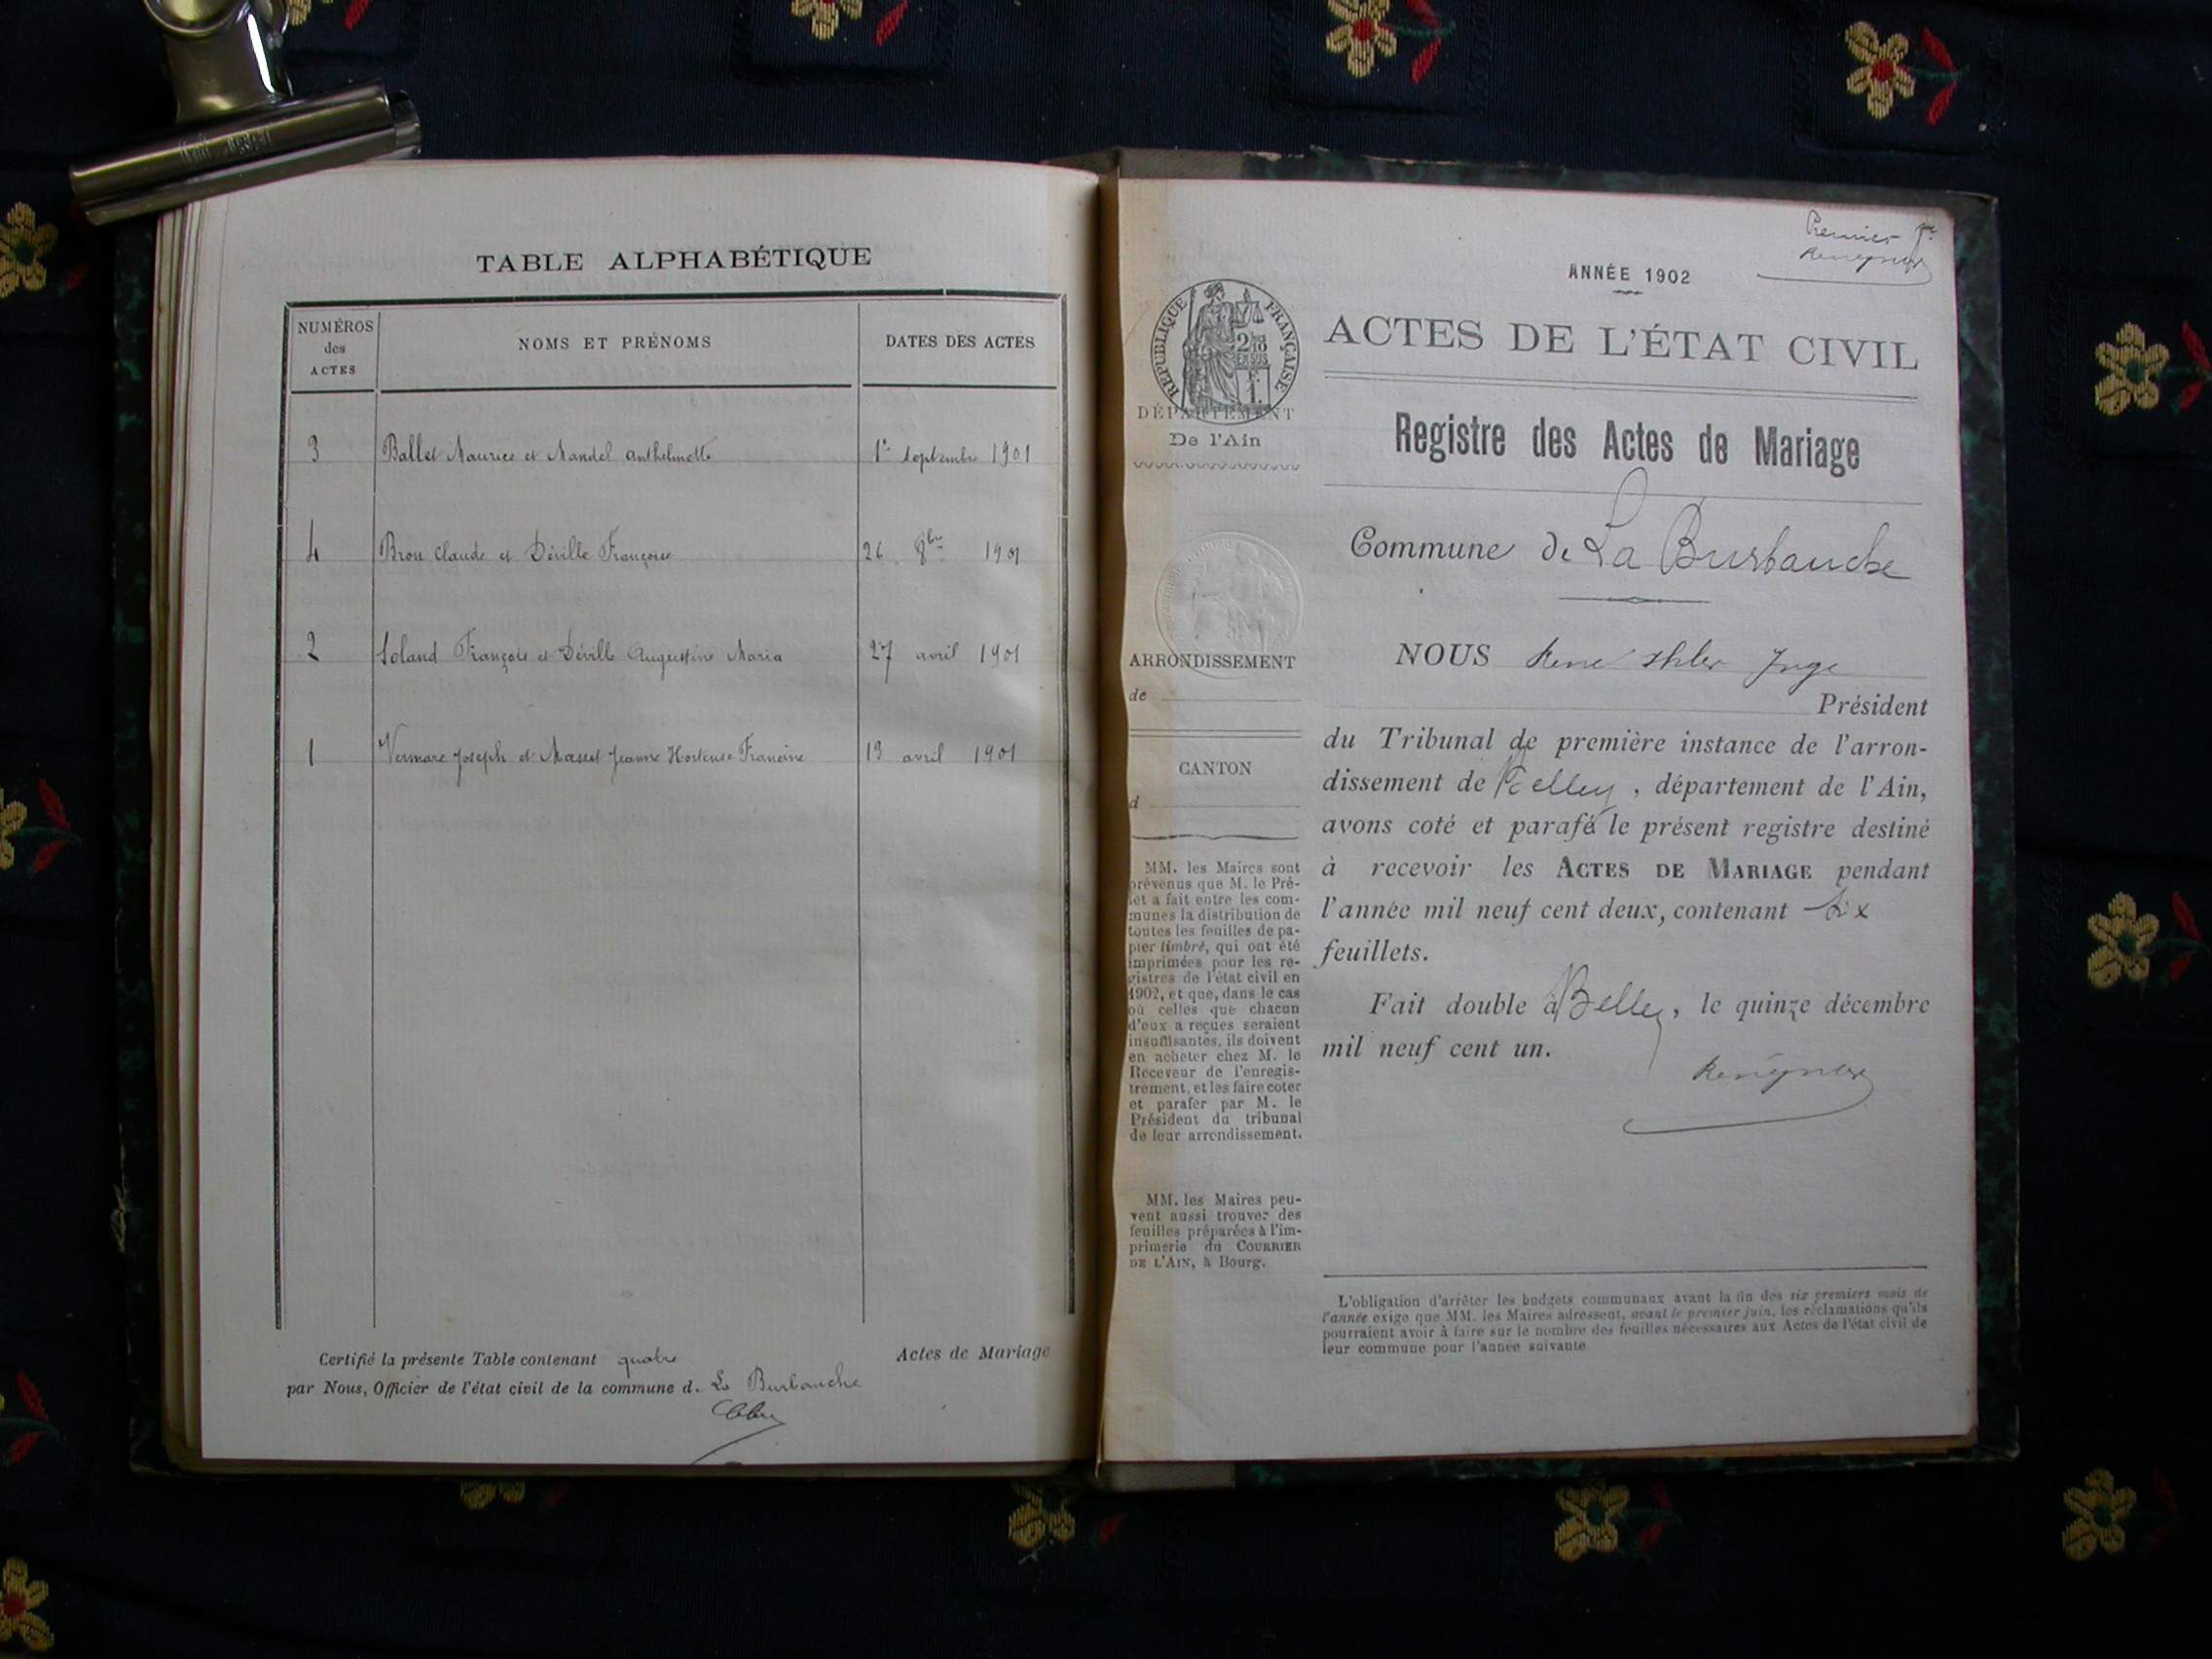 TABLE ALPHABÉTIQUE
NUMÉROS
des
ACTES
NOMS ET PRÉNOMS
DATES DES ACTES
3 Ballet Maurice et Mandel Anthelmette 1er septembre 1901
4 Bron Claude et Déville Françoise 26 8bre 1901
2 Soland François et Déville Augustine Maria 27 avril 1901
1 Vermare Joseph et Masset Jeanne Hortense Francine 13 avril 1901
Certifié la présente Table contenant quatre Actes de Mariage
par Nous, Officier de l'état civil de la commune d. La Burbanche
Premier
ANNÉE 1902
RÉPUBLIQUE FRANÇAISE
DÉPARTEMENT
De l'Ain
ARRONDISSEMENT
de
CANTON
d
MM. les Maires sont
prévenus que M. le Pré-
fet a fait entre les com-
munes la distribution de
toutes les feuilles de pa-
pier timbré, qui ont été
imprimées pour les re-
gistres de l'état civil en
1902, et que, dans le cas
où celles que chacun
d'eux a reçues seraient
insuffisantes, ils doivent
en acheter chez M. le
Receveur de l'enregis-
trement, et les faire coter
et parafer par M. le
Président du tribunal
de leur arrondissement.
MM. les Maires peu-
vent aussi trouver des
feuilles préparées à l'im-
primerie du COURRIER
DE L'AIN, à Bourg.
ACTES DE L'ÉTAT CIVIL
Registre des Actes de Mariage
Commune de La Burbanche
NOUS René Juge
Président
du Tribunal de première instance de l'arron-
dissement de Belley, département de l'Ain,
avons coté et parafé le présent registre destiné
à recevoir les ACTES DE MARIAGE pendant
l'année mil neuf cent deux, contenant six
feuillets.
Fait double à Belley, le quinze décembre
mil neuf cent un.
L'obligation d'arrêter les budgets communaux avant la fin des six premiers mois de
l'année exige que MM. les Maires adressent, avant le premier juin, les réclamations qu'ils
pourraient avoir à faire sur le nombre des feuilles nécessaires aux Actes de l'état civil de
leur commune pour l'année suivante.